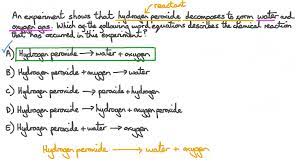 reactant
An experiment shows that hydrogen peroxide decomposes to form water and
oxygen gas. Which of the following word equations describes the chemical reaction
that has occurred in this experiment?
A) Hydrogen peroxide → water + oxygen
B) Hydrogen peroxide + oxygen → water
C) Hydrogen peroxide → peroxide + hydrogen
D) Hydrogen peroxide → hydrogen + oxygen peroxide
E) Hydrogen peroxide + water → oxygen
Hydrogen peroxide → water + oxygen